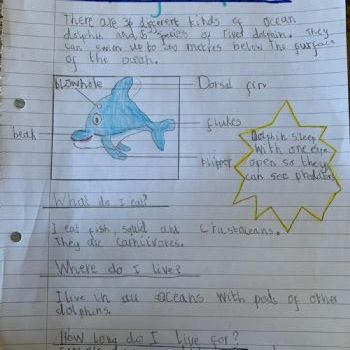 There are 36 different kinds of ocean
dolphin and 5 species of river dolphin. They
can swim up to 260 metres below the surface
of the ocean.
blowhole
Dorsal fin
beak
flukes
flipper
Dolphin sleep
with one eye
open so they
can see predators
What do I eat?
I eat fish, squid and crustaceans.
They are carnivores.
Where do I live?
I live in all oceans with pods of other
dolphins.
How long do I live for?